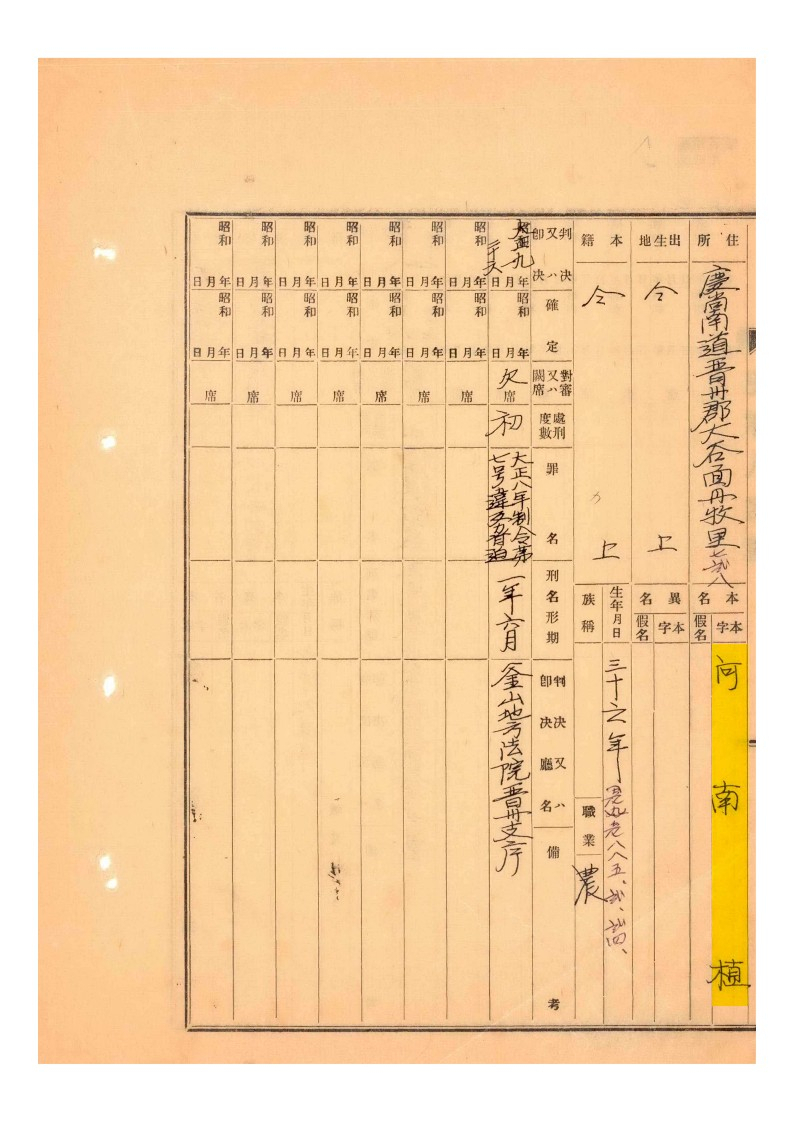 住所
慶尚南道晋州郡大谷面丹牧里七弐八
出生地
仝 上
本籍
仝 上
本名
本字
河南植
假名
異名
本字
假名
生年月日
三十六年
八八五、弐、弐四、
族稱
職業
農
判決又ハ即決
確定
對審又ハ闕席
處刑度數
罪名
刑名形期
判決又ハ即決廳名
備考
大正九年月日
昭和年月日
欠席
初
大正八年制令第
七号違反
一年六月
釜山地方法院晋州支庁
昭和年月日
昭和年月日
席
昭和年月日
昭和年月日
席
昭和年月日
昭和年月日
席
昭和年月日
昭和年月日
席
昭和年月日
昭和年月日
席
昭和年月日
昭和年月日
席
昭和年月日
昭和年月日
席